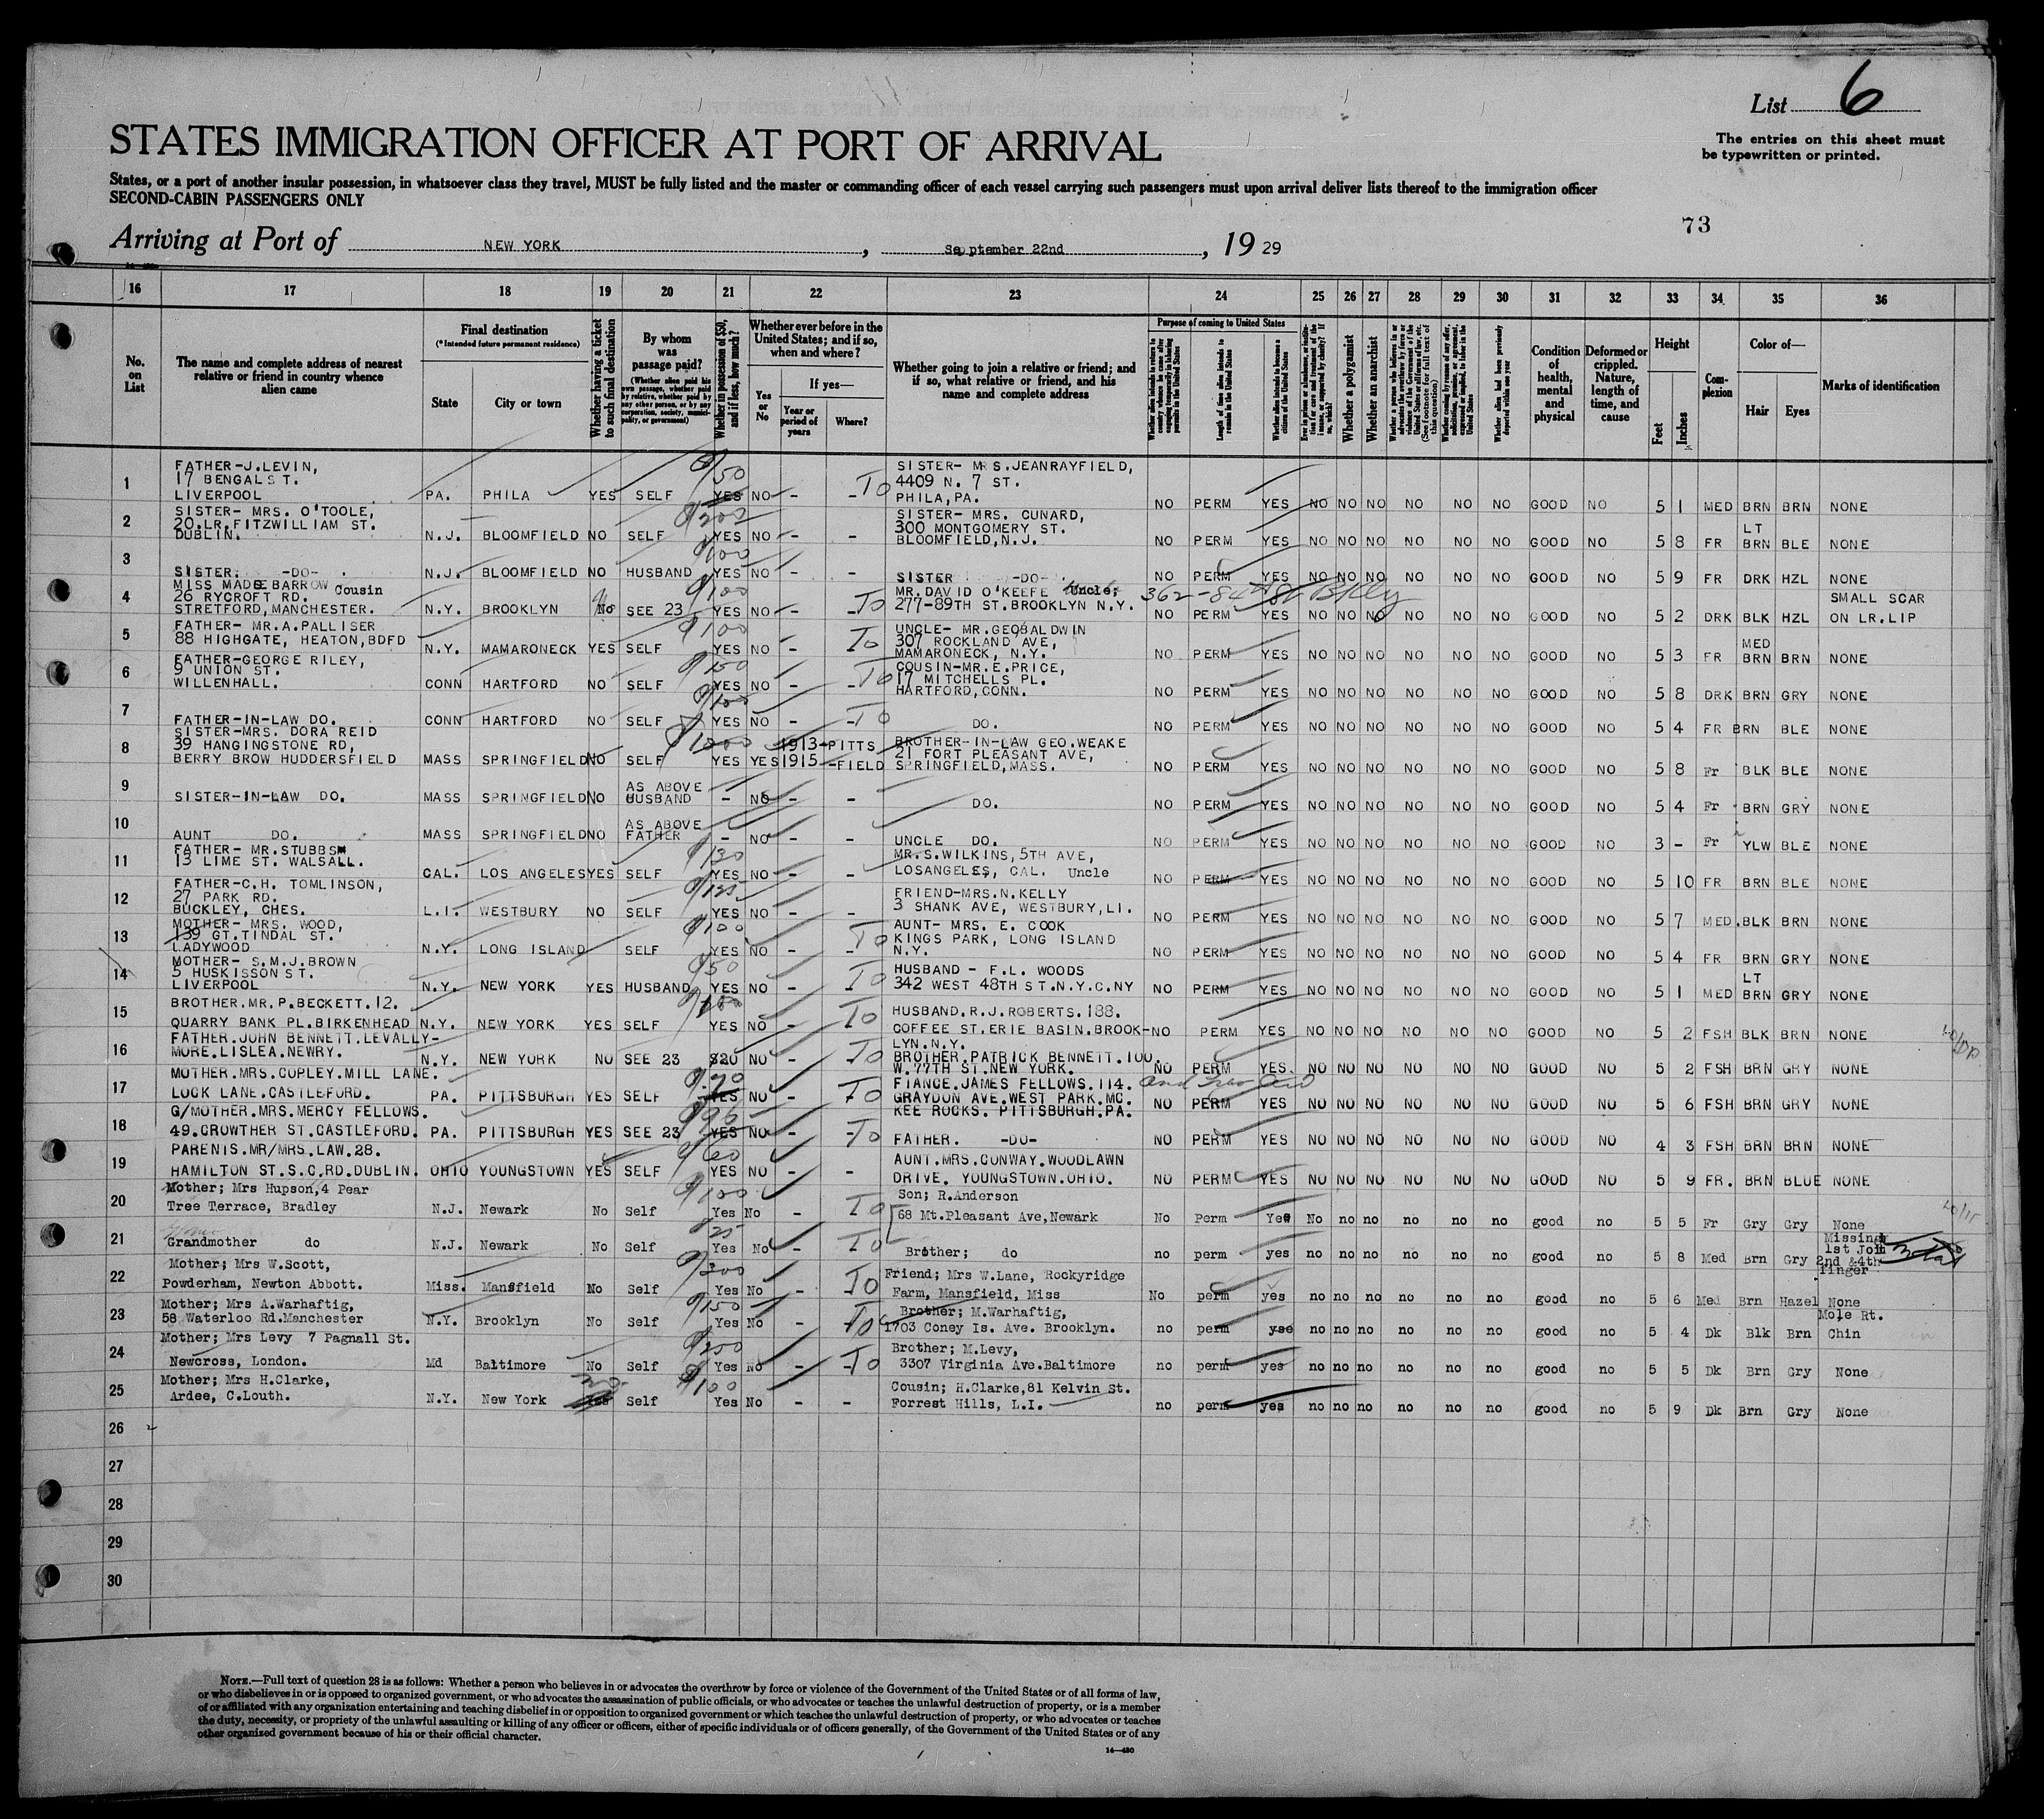 List 6
The entries on this sheet must
be typewritten or printed.
STATES IMMIGRATION OFFICER AT PORT OF ARRIVAL
States, or a port of another insular possession, in whatsoever class they travel, MUST be fully listed and the master or commanding officer of each vessel carrying such passengers must upon arrival deliver lists thereof to the immigration officer
SECOND-CABIN PASSENGERS ONLY
73
Arriving at Port of NEW YORK, September 22nd, 19 29
16 17 18 19 20 21 22 23 24 25 26 27 28 29 30 31 32 33 34 35 36
No. on List
The name and complete address of nearest relative or friend in country whence alien came
Final destination
(*Intended future permanent residence)
State
City or town
Whether having a ticket to such final destination
By whom was passage paid?
(Whether alien paid his own passage, whether paid by relative, whether paid by any other person, or by any corporation, society, municipality, or government)
Whether in possession of $50, and if less, how much?
Whether ever before in the United States; and if so, when and where?
Yes or No
If yes—
Year or period of years
Where?
Whether going to join a relative or friend; and if so, what relative or friend, and his name and complete address
Purpose of coming to United States
Length of time alien intends to remain in the United States
Whether alien intends to become a citizen of the United States
Whether a polygamist
Whether an anarchist
Condition of health, mental and physical
Deformed or crippled. Nature, length of time, and cause
Height
Feet
Inches
Complexion
Color of—
Hair
Eyes
Marks of identification
1 FATHER-J.LEVIN, 17 BENGAL ST. LIVERPOOL PA. PHILA YES SELF 50 YES NO - - To SISTER- MRS.JEANRAYFIELD, 4409 N. 7 ST. PHILA,PA. NO PERM YES NO NO NO NO NO NO GOOD NO 5 1 MED BRN BRN NONE
2 SISTER- MRS. O'TOOLE, 20.LR.FITZWILLIAM ST. DUBLIN. N.J. BLOOMFIELD NO SELF 202 YES NO - - SISTER- MRS. CUNARD, 300 MONTGOMERY ST. BLOOMFIELD,N.J. NO PERM YES NO NO NO NO NO NO GOOD NO 5 8 FR LT BRN BLE NONE
3 SISTER. -DO- . N.J. BLOOMFIELD NO HUSBAND 100 YES NO - - SISTER -DO- NO PERM YES NO NO NO NO NO NO GOOD NO 5 9 FR DRK HZL NONE
4 MISS MADGE BARROW Cousin 26 RYCROFT RD. STRETFORD,MANCHESTER. N.Y. BROOKLYN No SEE 23 100 YES NO - - To MR.DAVID O'KEEFE Uncle; 277-89TH ST.BROOKLYN N.Y. 362-84th St Bklyn NO PERM YES NO NO NO NO NO NO GOOD NO 5 2 DRK BLK HZL SMALL SCAR ON LR.LIP
5 FATHER- MR.A.PALLISER 88 HIGHGATE, HEATON,BDFD N.Y. MAMARONECK YES SELF 100 YES NO - To UNCLE- MR.GEO BALDWIN 307 ROCKLAND AVE, MAMARONECK, N.Y. NO PERM YES NO NO NO NO NO NO GOOD NO 5 3 FR MED BRN BRN NONE
6 FATHER-GEORGE RILEY, 9 UNION ST. WILLENHALL. CONN HARTFORD NO SELF 150 YES NO - - To COUSIN-MR.E.PRICE, 17 MITCHELLS PL. HARTFORD,CONN. NO PERM YES NO NO NO NO NO NO GOOD NO 5 8 DRK BRN GRY NONE
7 FATHER-IN-LAW DO. CONN HARTFORD NO SELF 100 YES NO - - To DO. NO PERM YES NO NO NO NO NO NO GOOD NO 5 4 FR BRN BLE NONE
8 SISTER-MRS. DORA REID 39 HANGINGSTONE RD, BERRY BROW HUDDERSFIELD MASS SPRINGFIELD NO SELF 1000 YES YES 1913- 1915 PITTS -FIELD BROTHER-IN-LAW GEO.WEAKE 21 FORT PLEASANT AVE, SPRINGFIELD,MASS. NO PERM YES NO NO NO NO NO NO GOOD NO 5 8 Fr BLK BLE NONE
9 SISTER-IN-LAW DO. MASS SPRINGFIELD NO AS ABOVE HUSBAND - NO - - DO. NO PERM YES NO NO NO NO NO NO GOOD NO 5 4 Fr BRN GRY NONE
10 AUNT DO. MASS SPRINGFIELD NO AS ABOVE FATHER - NO - - UNCLE DO. NO PERM YES NO NO NO NO NO NO GOOD NO 3 - Fr YLW BLE NONE
11 FATHER- MR.STUBBS 13 LIME ST. WALSALL. CAL. LOS ANGELES YES SELF 130 YES NO - - MR.S.WILKINS,5TH AVE, LOSANGELES, CAL. Uncle NO PERM YES NO NO NO NO NO NO GOOD NO 5 10 FR BRN BLE NONE
12 FATHER-C.H. TOMLINSON, 27 PARK RD. BUCKLEY, CHES. L.I. WESTBURY NO SELF 125 YES NO - - FRIEND-MRS.N.KELLY 3 SHANK AVE, WESTBURY,LI. NO PERM YES NO NO NO NO NO NO GOOD NO 5 7 MED. BLK BRN NONE
13 MOTHER- MRS. WOOD, 139 GT.TINDAL ST. LADYWOOD N.Y. LONG ISLAND SELF 100 YES NO - - To AUNT- MRS. E. COOK KINGS PARK, LONG ISLAND N.Y. NO PERM YES NO NO NO NO NO NO GOOD NO 5 4 FR BRN GRY NONE
14 MOTHER- S.M.J.BROWN 5 HUSKISSON ST. LIVERPOOL N.Y. NEW YORK YES HUSBAND 50 YES NO - - To HUSBAND - F.L. WOODS 342 WEST 48TH ST.N.Y.C.NY NO PERM YES NO NO NO NO NO NO GOOD NO 5 1 MED LT BRN GRY NONE
15 BROTHER.MR.P.BECKETT.12. QUARRY BANK PL.BIRKENHEAD N.Y. NEW YORK YES SELF 100 YES NO - To HUSBAND.R.J.ROBERTS.188. COFFEE ST.ERIE BASIN.BROOK- LYN.N.Y. NO PERM YES NO NO NO NO NO NO GOOD NO 5 2 FSH BLK BRN NONE
16 FATHER.JOHN BENNETT.LEVALLY- MORE.LISLEA.NEWRY. N.Y. NEW YORK NO SEE 23 $20 NO - - To BROTHER.PATRICK BENNETT.100. W.77TH ST.NEW YORK. NO PERM YES NO NO NO NO NO NO GOOD NO 5 2 FSH BRN GRY NONE
17 MOTHER.MRS.COPLEY.MILL LANE. LOCK LANE.CASTLEFORD. PA. PITTSBURGH YES SELF YES NO - To FIANCE.JAMES FELLOWS.114. GRAYDON AVE.WEST PARK.MC. KEE ROCKS. PITTSBURGH.PA. NO PERM YES NO NO NO NO NO NO GOOD NO 5 6 FSH BRN GRY NONE
18 G/MOTHER.MRS.MERCY FELLOWS. 49.CROWTHER ST.CASTLEFORD. PA. PITTSBURGH YES SEE 23 YES NO - - To FATHER. -DO- NO PERM YES NO NO NO NO NO NO GOOD NO 4 3 FSH BRN BRN NONE
19 PARENTS.MR/MRS.LAW.28. HAMILTON ST.S.C.RD.DUBLIN. OHIO YOUNGSTOWN YES SELF 60 YES NO - - AUNT.MRS.CONWAY.WOODLAWN DRIVE. YOUNGSTOWN.OHIO. NO PERM YES NO NO NO NO NO NO GOOD NO 5 9 FR. BRN BLUE NONE
20 Mother; Mrs Hupson,4 Pear Tree Terrace, Bradley N.J. Newark No Self 100 Yes No - To Son; R.Anderson 68 Mt.Pleasant Ave,Newark No Perm Yes No no no no no no good no 5 5 Fr Gry Gry None
21 Grandmother do N.J. Newark No Self 25 Yes No - To Brother; do no perm yes no no no no no no good no 5 8 Med Brn Gry Missing 1st Join 2nd &4th finger
22 Mother; Mrs W.Scott, Powderham, Newton Abbott. Miss. Mansfield No Self 300 Yes No - To Friend; Mrs W.Lane, Rockyridge Farm, Mansfield, Miss No perm yes no no no no no no good no 5 6 Med Brn Hazel None
23 Mother; Mrs A.Warhaftig, 58 Waterloo Rd.Manchester N.Y. Brooklyn No Self 150 Yes No - To Brother; M.Warhaftig, 1703 Coney Is. Ave. Brooklyn. no perm yse no no no no no no good no 5 4 Dk Blk Brn Mole Rt. Chin
24 Mother; Mrs Levy 7 Pagnall St. Newcross, London. Md Baltimore No Self 250 Yes No - - To Brother; M.Levy, 3307 Virginia Ave.Baltimore no perm yes no no no no no no good no 5 5 Dk Brn Gry None
25 Mother; Mrs H.Clarke, Ardee, C.Louth. N.Y. New York Yes Self 100 Yes No - - Cousin; H.Clarke,81 Kelvin St. Forrest Hills, L.I. no perm yes no no no no no no good no 5 9 Dk Brn Gry None
26
27
28
29
30
NOTE.—Full text of question 28 is as follows: Whether a person who believes in or advocates the overthrow by force or violence of the Government of the United States or of all forms of law,
or who disbelieves in or is opposed to organized government, or who advocates the assassination of public officials, or who advocates or teaches the unlawful destruction of property, or is a member
of or affiliated with any organization entertaining and teaching disbelief in or opposition to organized government or which teaches the unlawful destruction of property, or who advocates or teaches
the duty, necessity, or propriety of the unlawful assaulting or killing of any officer or officers, either of specific individuals or of officers generally, of the Government of the United States or of any
other organized government because of his or their official character.
14—430